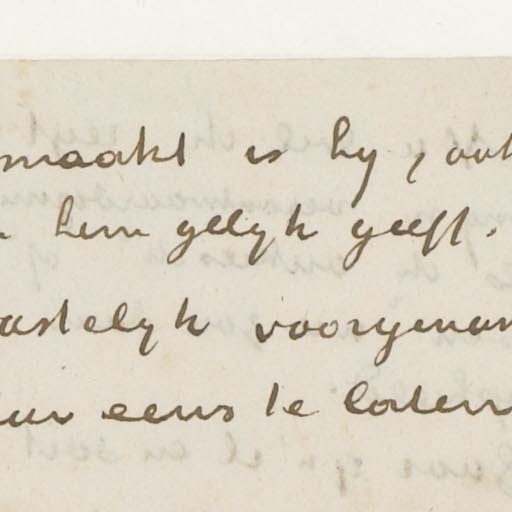 maakt is hy, ook
hem gelyk geeft.
astelyk voorgenom
eens te laten